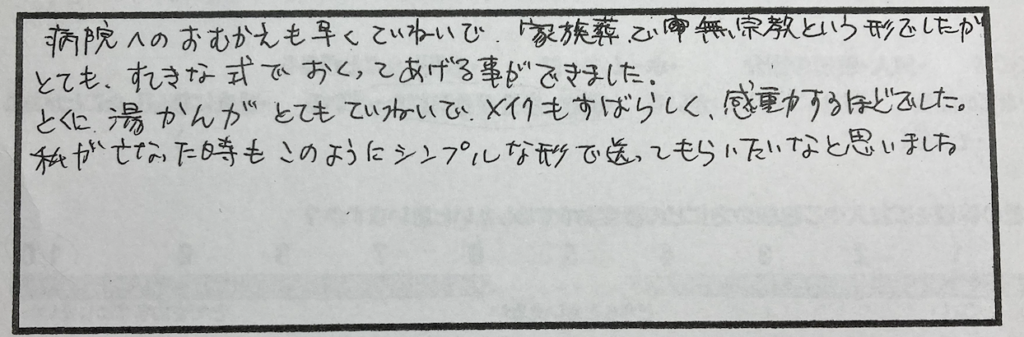 病院へのおむかえも早くていねいで、家族葬、で無宗教という形でしたが
とても、すてきな式でおくってあげる事ができました。
とくに湯かんがとてもていねいで、メイクもすばらしく、感動するほどでした。
私がせなった時もこのようにシンプルな形で送ってもらいたいなと思いました